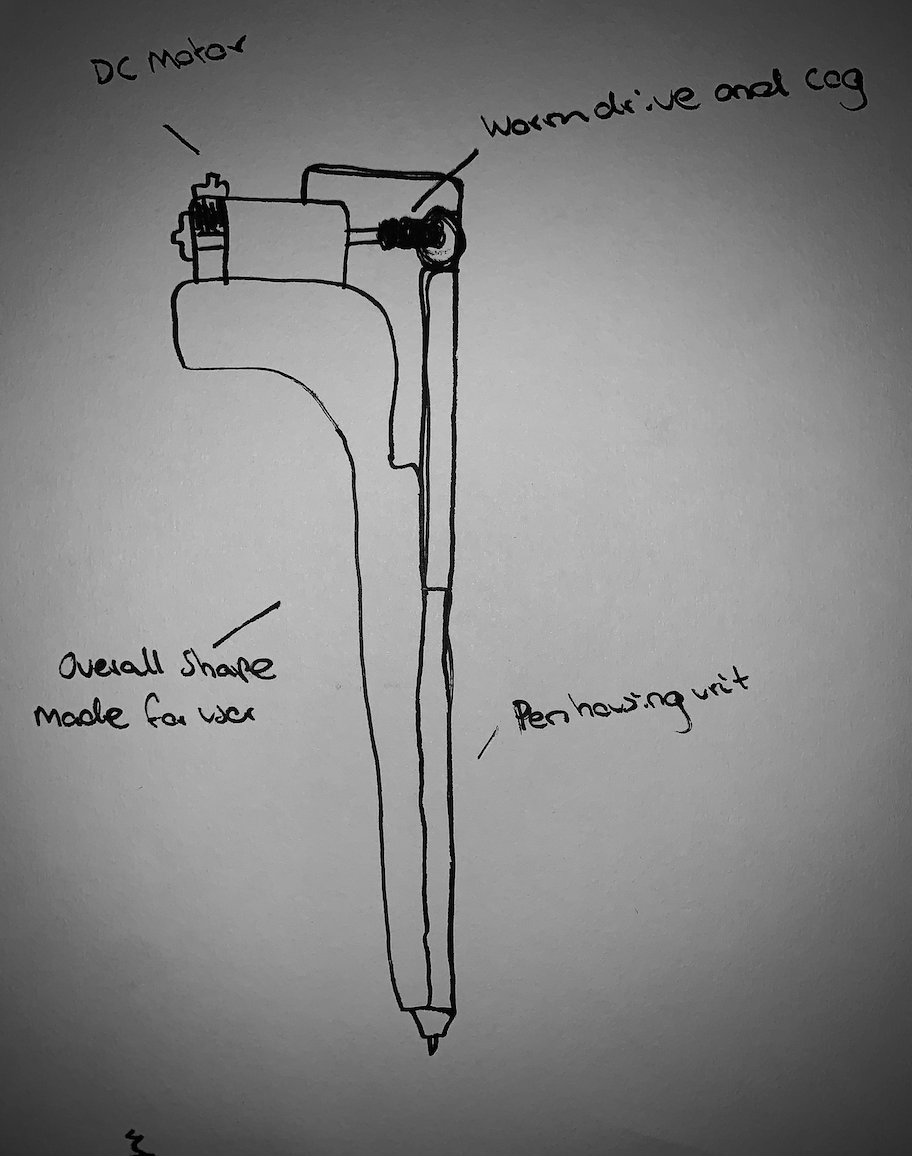 DC Motor
Worm drive and cog
Overall Shape
made for user
Pen housing unit